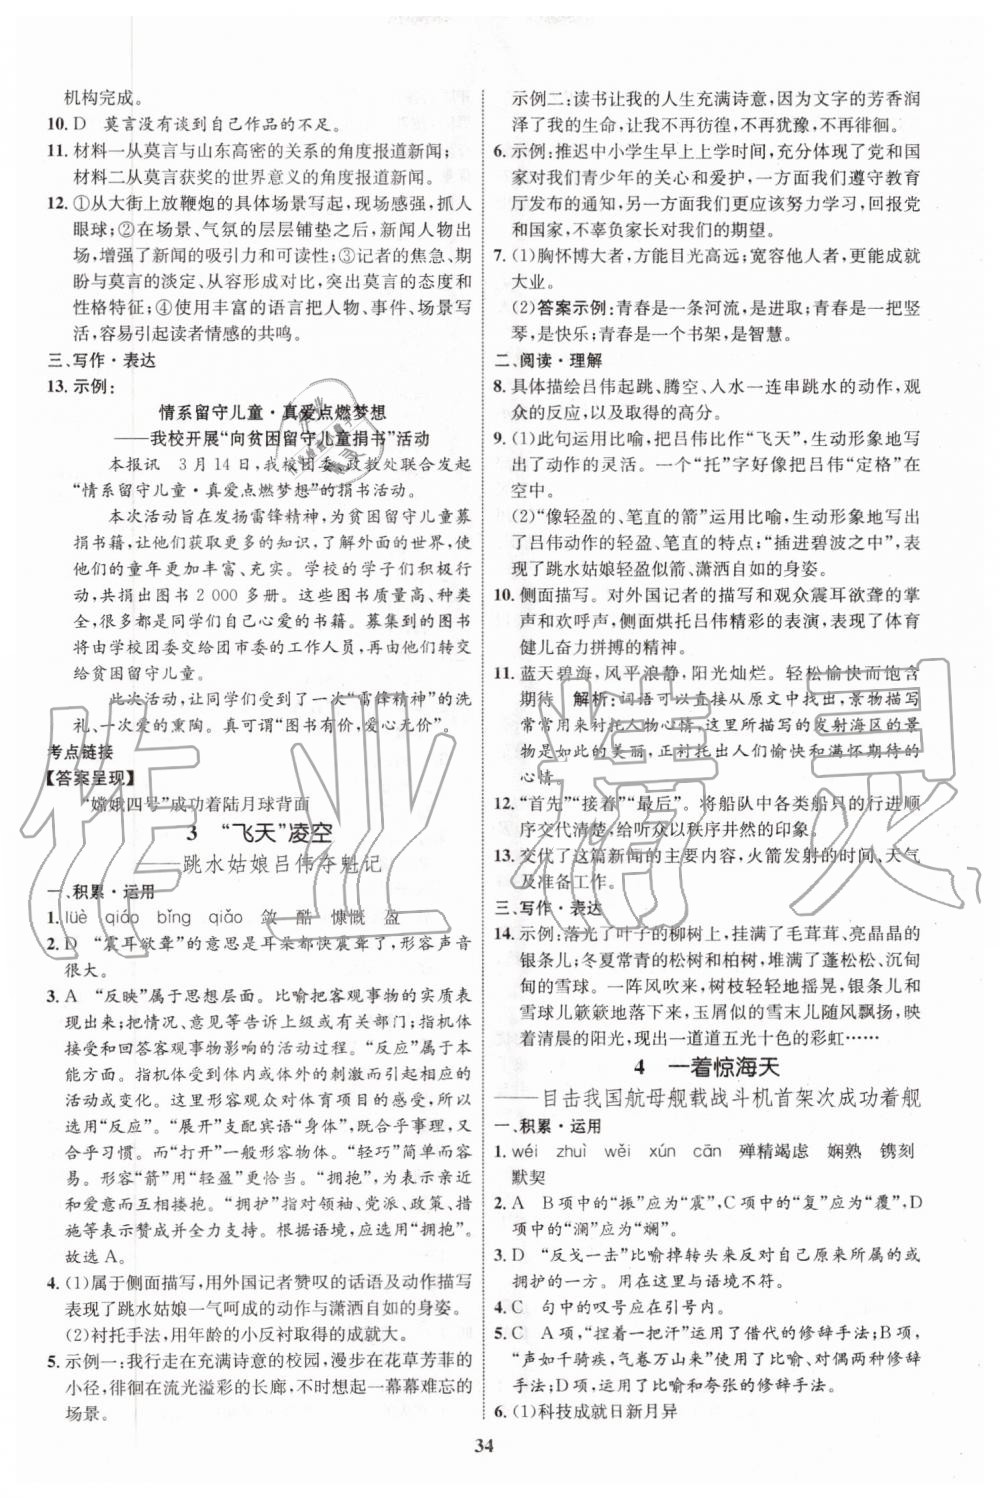 机构完成。
10. D　莫言没有谈到自己作品的不足。
11. 材料一从莫言与山东高密的关系的角度报道新闻；
材料二从莫言获奖的世界意义的角度报道新闻。
12. ①从大街上放鞭炮的具体场景写起，现场感强，抓人
眼球；②在场景、气氛的层层铺垫之后，新闻人物出
场，增强了新闻的吸引力和可读性；③记者的焦急、期
盼与莫言的淡定、从容形成对比，突出了莫言的态度和
性格特征；④使用丰富的语言把人物、事件、场景写
活，容易引起读者情感的共鸣。
三、写作·表达
13. 示例：
情系留守儿童·真爱点燃梦想
——我校开展“向贫困留守儿童捐书”活动
本报讯　3月14日，我校团委、政教处联合发起
“情系留守儿童·真爱点燃梦想”的捐书活动。
本次活动旨在发扬雷锋精神，为贫困留守儿童募
捐书籍，让他们获取更多的知识，了解外面的世界，使
他们的童年更加丰富、充实。学校的学子们积极行
动，共捐出图书2 000多册。这些图书质量高、种类
全，很多是同学们自己心爱的书籍。募集到的图书
将由学校团委交给团市委的工作人员，再由他们转交
给贫困留守儿童。
此次活动，让同学们受到了一次“雷锋精神”的洗
礼、一次爱的熏陶。真可谓“图书有价，爱心无价”。
考点链接
【答案呈现】
“嫦娥四号”成功着陆月球背面
3　“飞天”凌空
——跳水姑娘吕伟夺魁记
一、积累·运用
1. lüè　qiáo　bǐng　qiǎo　敛　酷　慷慨　盈
2. D　“震耳欲聋”的意思是耳朵都快震聋了，形容声音
很大。
3. A　“反映”属于思想层面。比喻把客观事物的实质表
现出来；把情况、意见等告诉上级或有关部门；指机体
接受和回答客观事物影响的活动过程。“反应”属于本
能方面。指生物受到体内或体外的刺激而引起的相应
的活动。这里形容观众对体育健儿的表现作出的回应，
应选用“反应”。“展开”支配宾语“身体”，既合乎事理，又
合乎习惯。而“打开”一般形容物体。“轻巧”简单容易。
形容“箭”用“轻盈”更恰当。“拥抱”，这里指为表示亲近
和爱意而互相搂抱。“拥护”指对领袖、党派、政策、措
施等表示赞成并全力支持。根据语境，应选用“拥抱”。
故选A。
4. (1)属于侧面描写，用外国记者赞叹的话语及动作描写
表现了跳水姑娘一气呵成的动作与潇洒自如的身姿。
(2)衬托手法，用年龄的小反衬取得的成就大。
5. 示例一：我行走在充满诗意的校园，漫步在花草芳菲的
小径，徘徊在流光溢彩的长廊，不时珍藏一幕幕难忘的
场景。
示例二：读书让我的人生充满诗意，因为文字的芳香润
泽了我的生命，让我不再彷徨，不再犹豫，不再徘徊。
6. 示例：推迟中小学生早上上学时间，充分体现了党和国
家对我们青少年的关心和爱护，一方面我们遵守教育
厅发布的通知，另一方面我们更应该努力学习，回报党
和国家，不辜负家长对我们的期望。
7. (1)胸怀博大者，方能目光高远；宽容他人者，更能成就
大业。
(2)答案示例：青春是一条河流，是进取；青春是一把竖
琴，是快乐；青春是一个书架，是智慧。
二、阅读·理解
8. 具体描绘吕伟起跳、腾空、入水一连串跳水的动作，观
众的反应，以及取得的高分。
9. (1)此句运用比喻，把吕伟比作“飞天”，生动形象地写
出了动作的灵活。一个“托”字好像把吕伟“定格”在
空中。
(2)“像轻盈的、笔直的箭”运用比喻，生动形象地写出
了吕伟动作的轻盈、笔直的特点；“插进碧波之中”，表
现了跳水姑娘轻盈似箭、潇洒自如的身姿。
10. 侧面描写。对外国记者的描写和观众震耳欲聋的掌
声和欢呼声，侧面烘托吕伟精彩的表演，表现了体育
健儿奋力拼搏的精神。
11. 蓝天碧海，风平浪静，阳光灿烂。轻松愉快而饱含
期待　解析：词语可以直接从原文中找出，景物描写
常常用来衬托人物心情，这里所描写的发射海区的景
物是如此的美丽，正衬托出人们愉快和满怀期待的
心情。
12. “首先”“接着”“最后”。将船队中各类船只的行进顺
序交代清楚，给听众以秩序井然的印象。
13. 交代了这篇新闻的内容，火箭发射的时间、天气
及准备工作。
三、写作·表达
14. 示例：落光了叶子的柳树上，挂满了毛茸茸、亮晶晶的
银条儿；冬夏常青的松树和柏树，堆满了蓬松松、沉甸
甸的雪球。一阵风吹来，树枝轻轻地摇晃，银条儿和
雪球儿簌簌地落下来，玉屑似的雪末儿随风飘扬，映着
清晨的阳光，现出一道道五光十色的彩虹……
4　一着惊海天
——目击我国航母舰载战斗机首架次成功着舰
一、积累·运用
1. wéi　zhuì　wěi　xún　cān　殚精竭虑　娴熟　镌刻
默契
2. A　B项中的“振”应为“震”，C项中的“复”应为“覆”，D
项中的“澜”应为“斓”。
3. D　“反戈一击”比喻掉转头来反对自己原来所属的或
拥护的一方。用在此处与语境不符。
4. C　句中的叹号应在引号内。
5. C　A项，“捏着一把汗”运用了借代的修辞手法；B项，
“声如千骑疾，气卷万山来”使用了比喻、对偶两种修辞
手法；D项，运用了比喻和夸张的修辞手法。
6. (1)科技成就日新月异
34
作业精灵